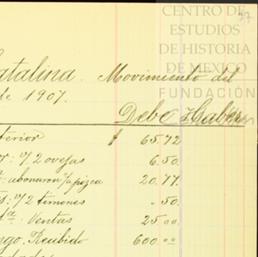 CENTRO DE
ESTUDIOS
DE HISTORIA
DE MEXICO
FUNDACIÓN
37
Catalina. Movimiento del
de 1907.
Debe Haber
terior $ 65.72
2 ovejas 6.50
abonaron 20.77
2 timones .50
Ventas 25.00
Recibido 600.00